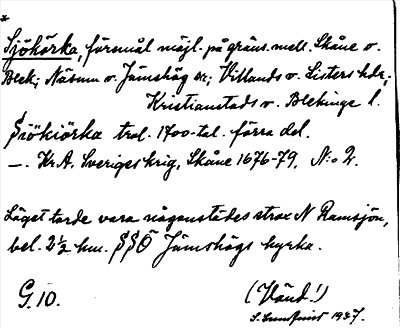 *
Sjökörka, försmål möjl. på gräns. mell. Skåne o.
Blek.; Näsum o. Jämshög sn; Villands o. Listers hdr;
Kristianstads o. Blekinge l.
Siökiörka trol. 1700-tal. förra del.
—. Kr.A. Sveriges krig, Skåne 1676-79, N:o 2.
Läget torde vara någonstädes strax N Ramsjön,
bel. 2½ km. SSÖ Jämshögs kyrka.
G. 10.
(Vänd!)
1937.